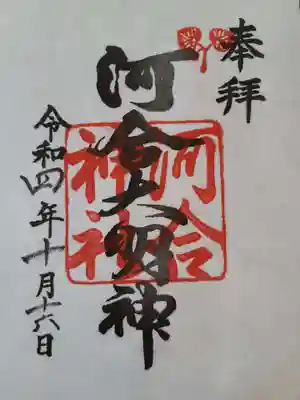 奉拝
河合大明神
河合
神社
令和四年十月十六日